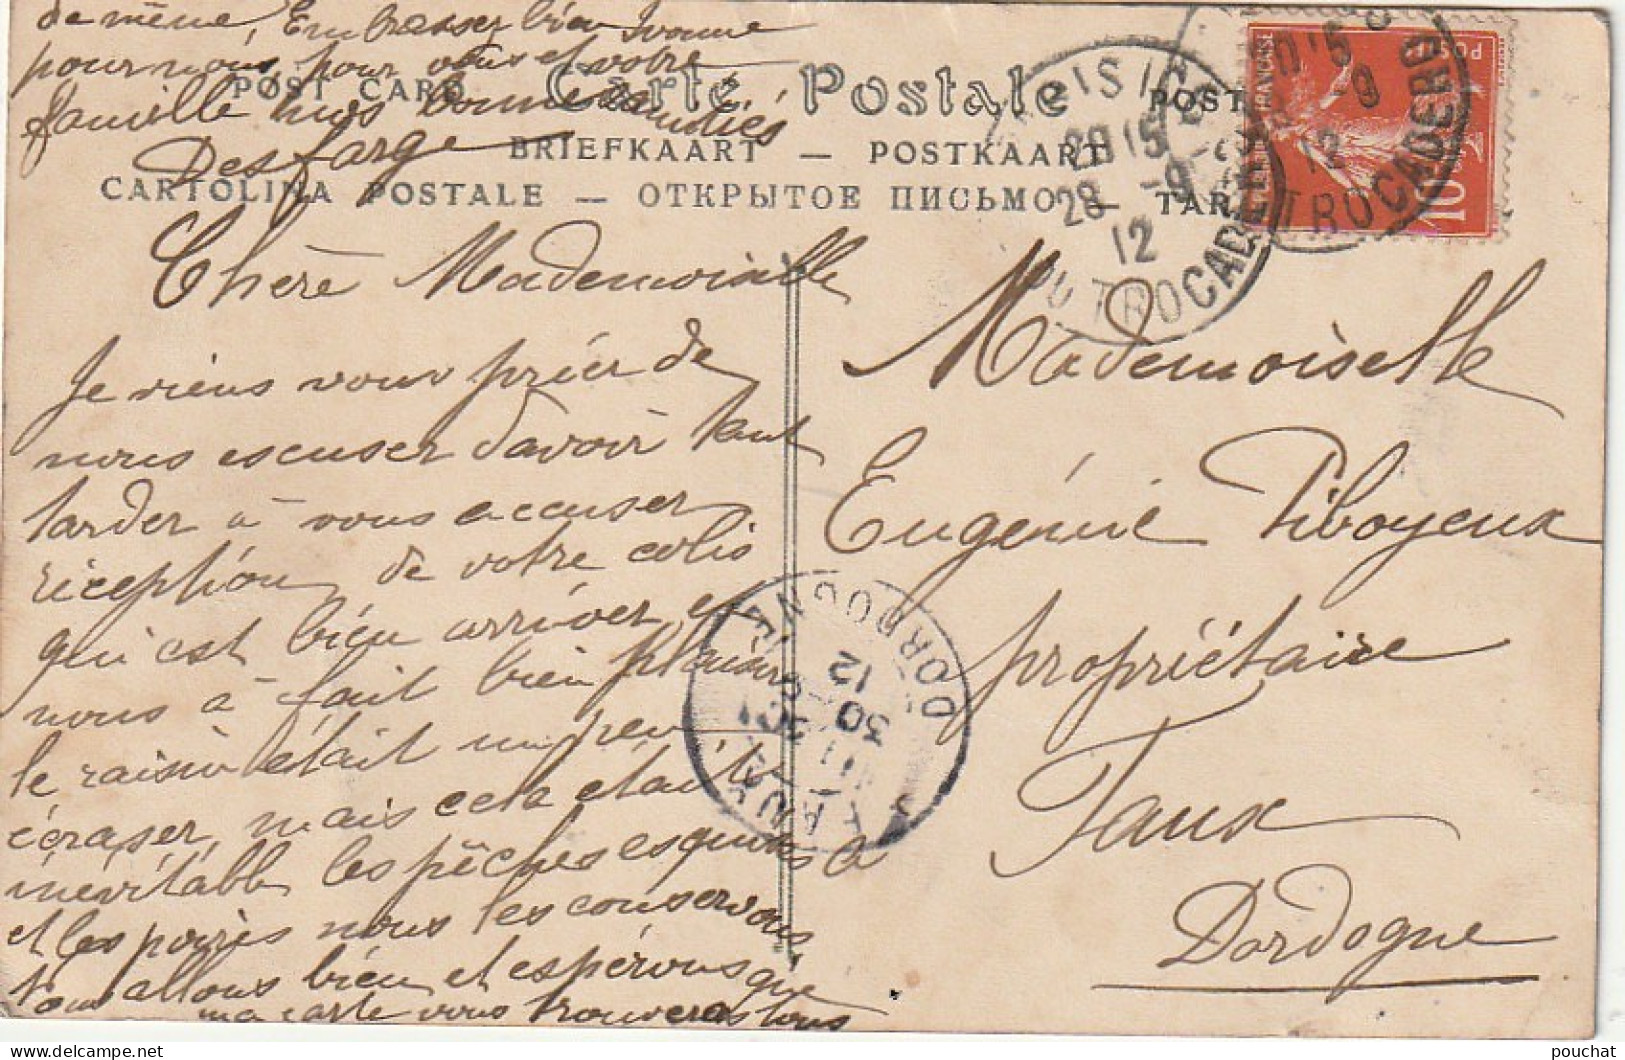 de même, Embrasser bien Ivonne
pour nous, pour vous et votre
famille nos bonnes amitiés
Desfarge
POST CARD Carte Postale POST
BRIEFKAART — POSTKAART
CARTOLINA POSTALE — ОТКРЫТОЕ ПИСЬМО — TAR
Chère Mademoiselle
Je viens vous prier de
nous escuser d'avoir tant
tarder à vous accuser
réception de votre colis
qui est bien arriver et
nous à fait bien plaisir
le raisin était un peu
écraser, mais cela était
inévitable les pêches esquises
et les poires nous les conservons
tous allons bien et espérons que
ma carte vous trouveras tous
Mademoiselle
Eugénie Piboyeux
propriétaire
Faux
Dordogne
PARIS
28 -9
12
DU TROCADERO
-9
12
TROCADERO
POSTES
10
FAUX
30
12
DORDOGNE
pouchat